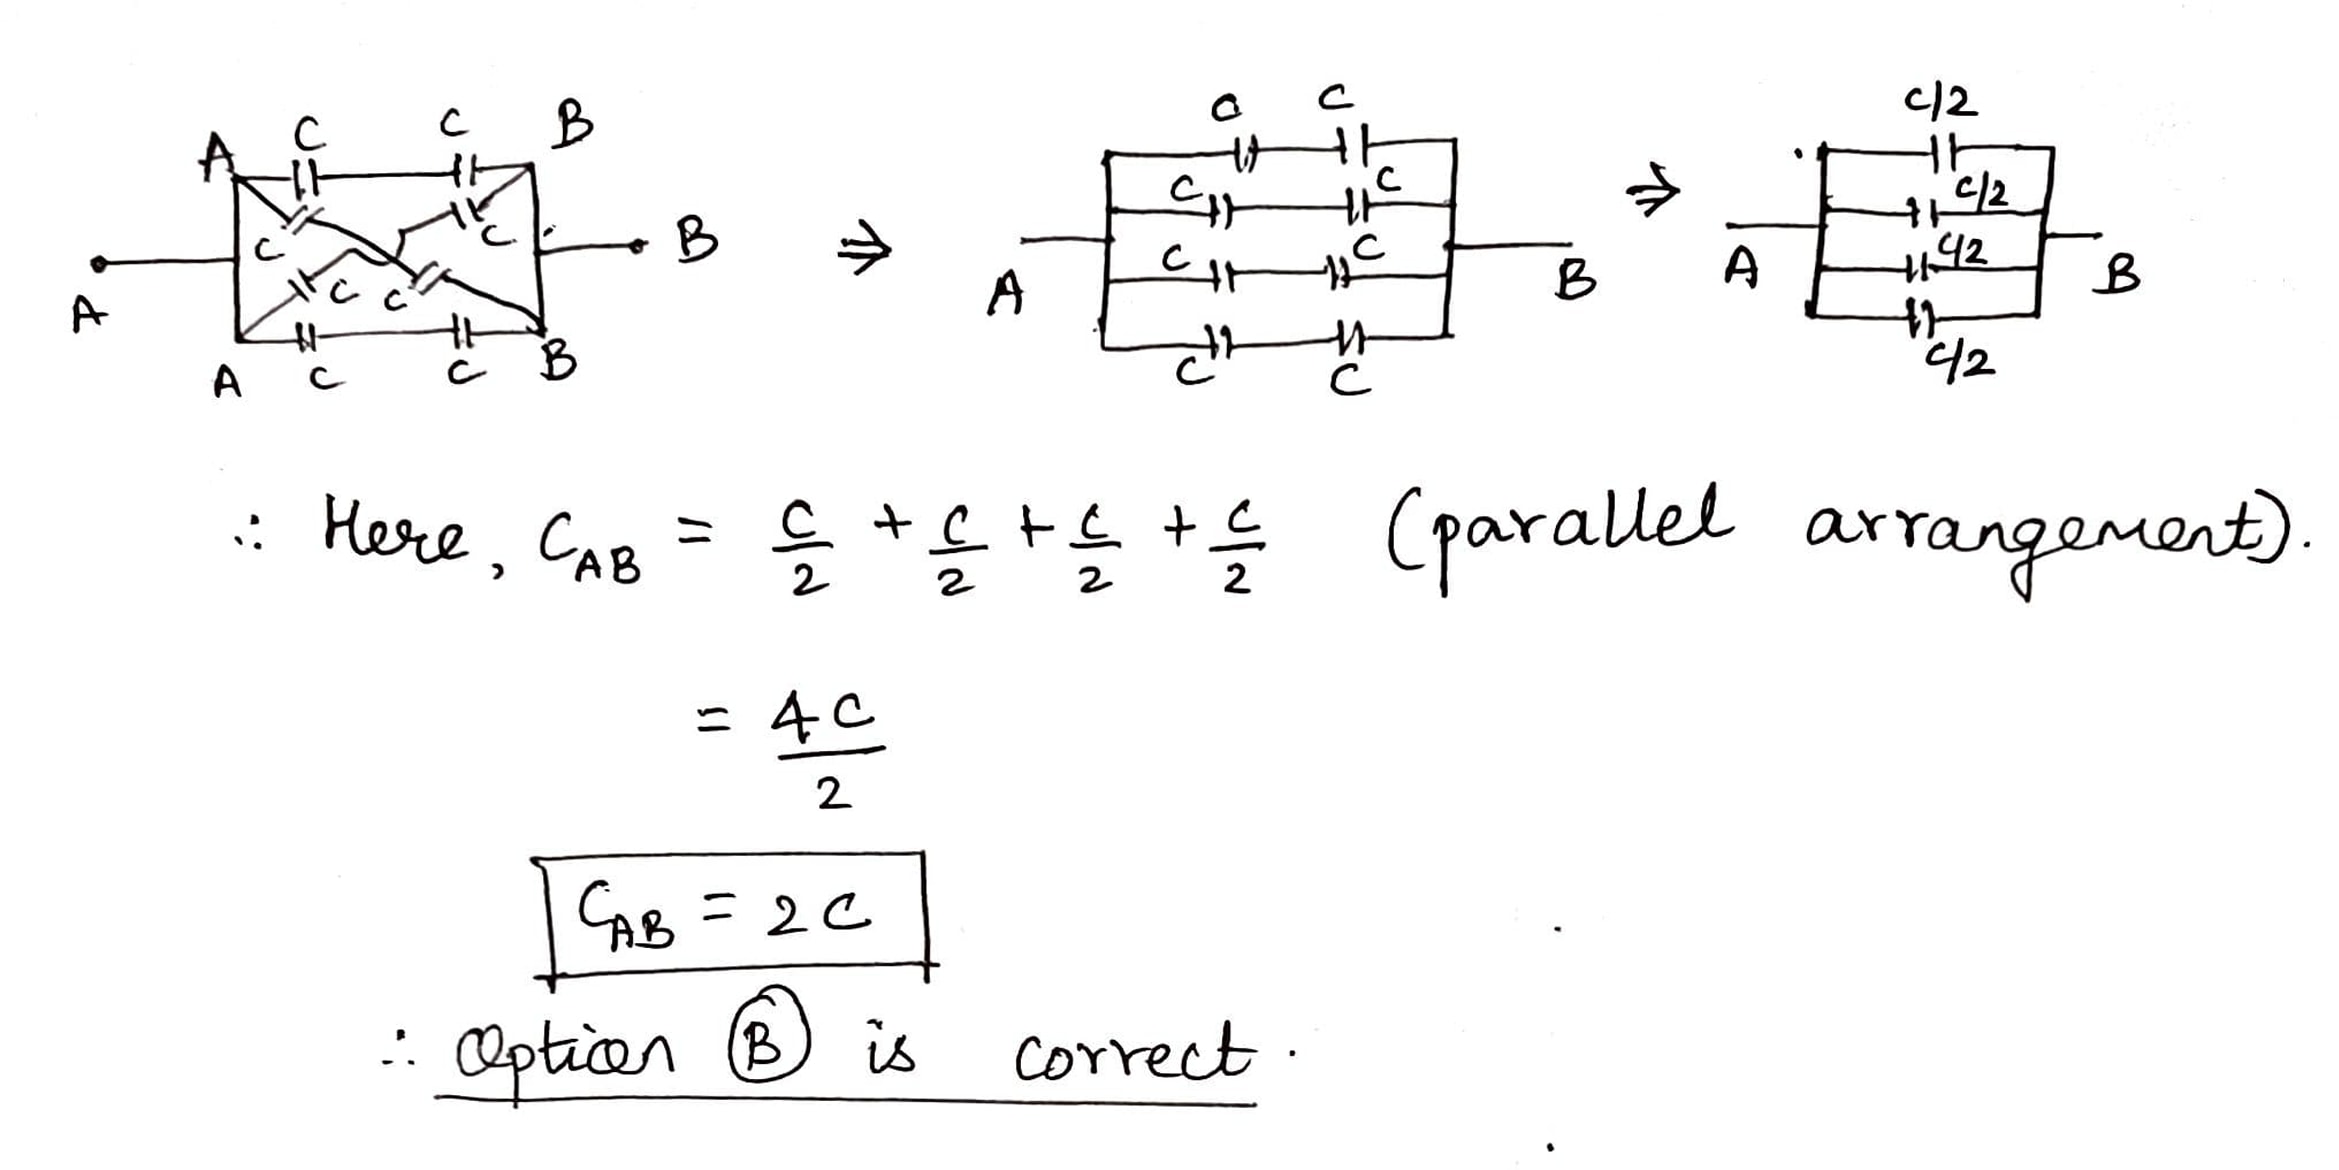 A C C B
C C
A B
C C
A C C B
⇒
C C
C C
C C
A B
C C
⇒
C/2
C/2
C/2
A B
C/2
∴ Here, C_AB = C/2 + C/2 + C/2 + C/2 (parallel arrangement).
= 4C/2
C_AB = 2C
∴ Option Ⓑ is correct.